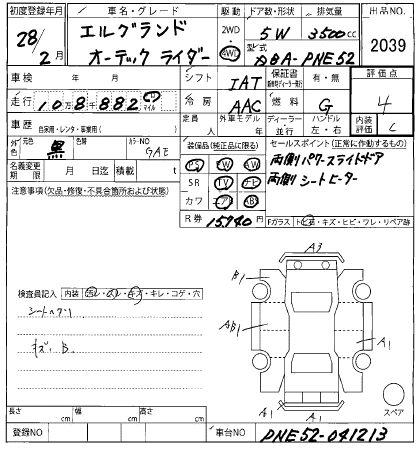 初度登録年月 車名・グレード 駆動 ドア数・形状 排気量 出品NO
28年2月 エルグランド 2WD 4WD 5W 3500cc 2039
オーテック ライダー 型式 DBA-PNE52
車検 年 月 シフト IAT 保証書 有・無 評価点
走行 10万8千882 km マイル 冷房 AAC 燃料 G 4
車歴 自家用・レンタ・事業用( ) 定員 人 外車モデル 年 ディーラー 並行 ハンドル 左・右 内装評価 C
外色 元色 黒 色替 カラーNO GAE
装備品(純正品に限る) セールスポイント(正常に作動するもの)
PS PW AW 両側パワースライドドア
名義変更期限 月 日迄 積載 t SR TV ナビ 両側シートヒーター
注意事項(欠品・修復・不具合箇所および状態) カワ エアB ABS
R券 15,940円 Fガラス トビ石・キズ・ヒビ・ワレ・リペア跡
A3
B1
検査員記入 内装 汚レ・スレ・キズ・キレ・コゲ・穴
シートヘタリ AB1
A1
キズ、B
A1 A1
スペア
長さ cm 幅 cm 高さ cm
登録NO 車台NO PNE52-041213